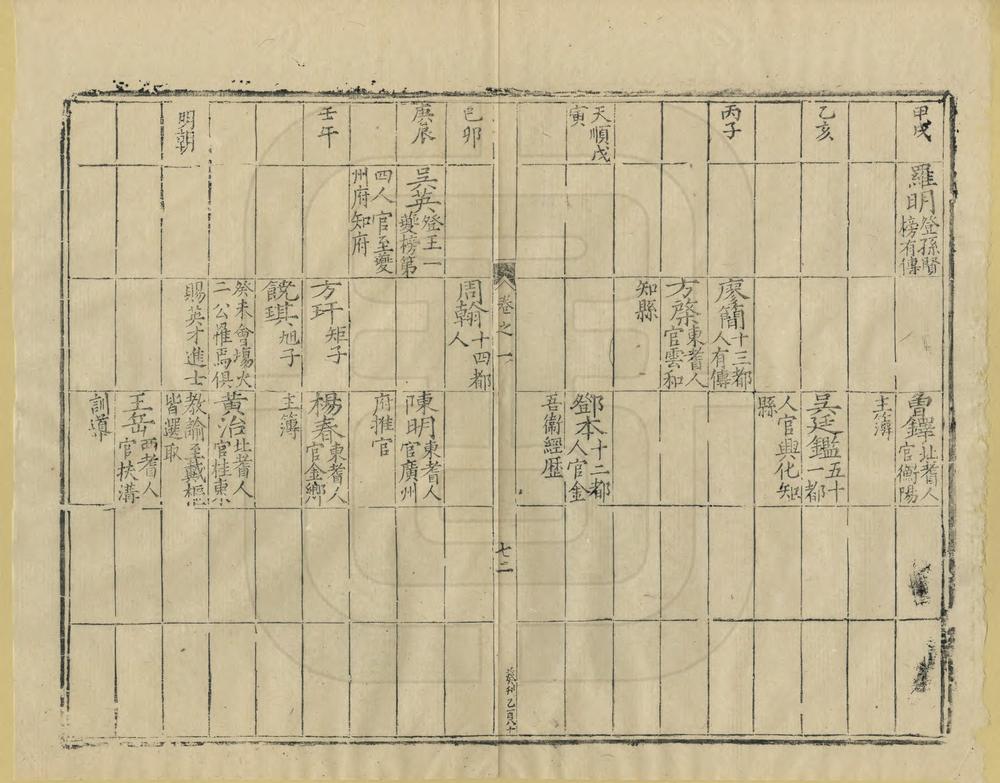 甲戌
羅明登孫賢
榜有傳
魯鐸北耆人
官衡陽
主簿
乙亥
吳廷鑑五十
一都
人官興化知
縣
丙子
廖簡十三都
人有傳
方棨東耆人
官雲和
知縣
天順戊
寅
鄧本十二都
人官金
吾衛經歷
卷之一
七二
己卯
周翰十四都
人
庚辰
吳英登王一
夔榜第
四人官至夔
州府知府
陳明東耆人
官廣州
府推官
壬午
方玶矩子
楊春東耆人
官金鄉
饒琪旭子
主簿
癸未會場火
二公罹焉俱
賜英才進士
黃治北耆人
官桂東
教諭至戴樞
皆選取
明朝
王岳西耆人
官扶溝
訓導